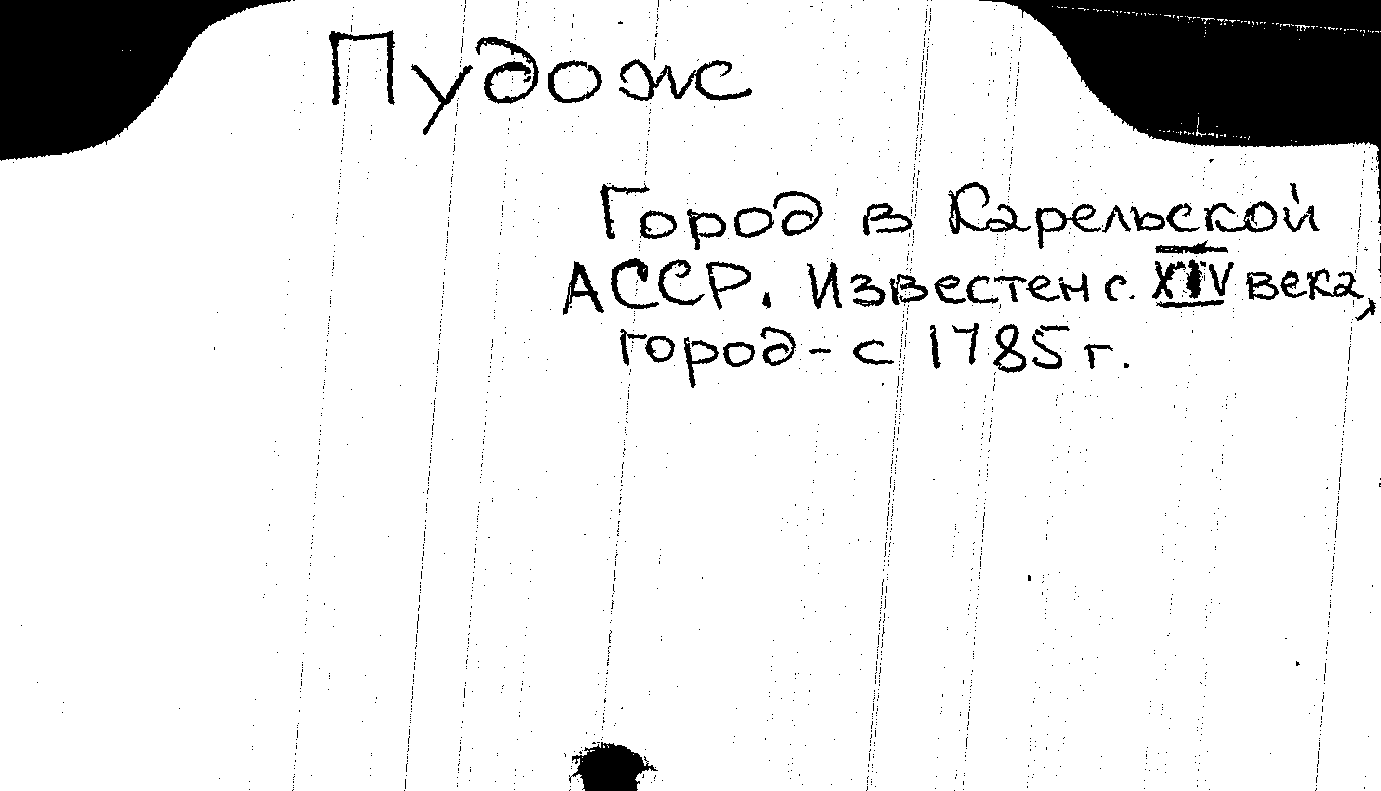 Пудож
Город в Карельской
АССР. Известен с XIV века,
город - с 1785 г.